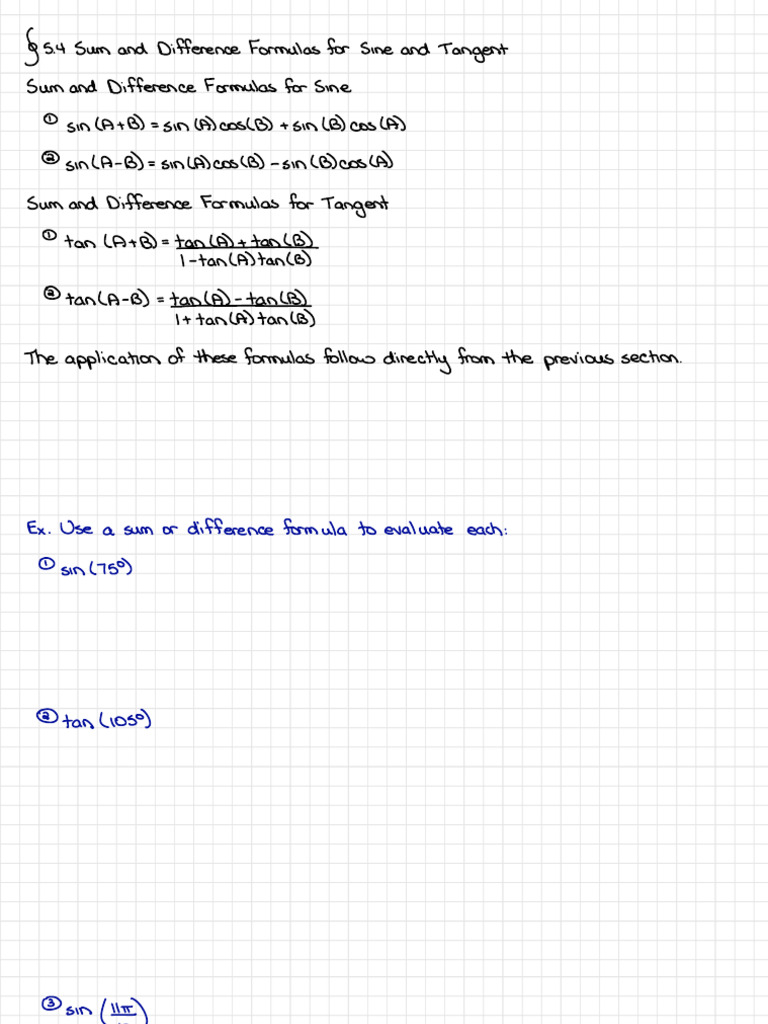 § 5.4 Sum and Difference Formulas for Sine and Tangent
Sum and Difference Formulas for Sine
① sin(A+B) = sin(A)cos(B) + sin(B)cos(A)
② sin(A-B) = sin(A)cos(B) - sin(B)cos(A)
Sum and Difference Formulas for Tangent
① tan (A+B) = tan(A) + tan(B)
1-tan(A)tan(B)
② tan(A-B) = tan(A) - tan(B)
1+ tan(A) tan(B)
The application of these formulas follow directly from the previous section.
Ex. Use a sum or difference formula to evaluate each:
① sin(75°)
② tan(105°)
③ sin (11π